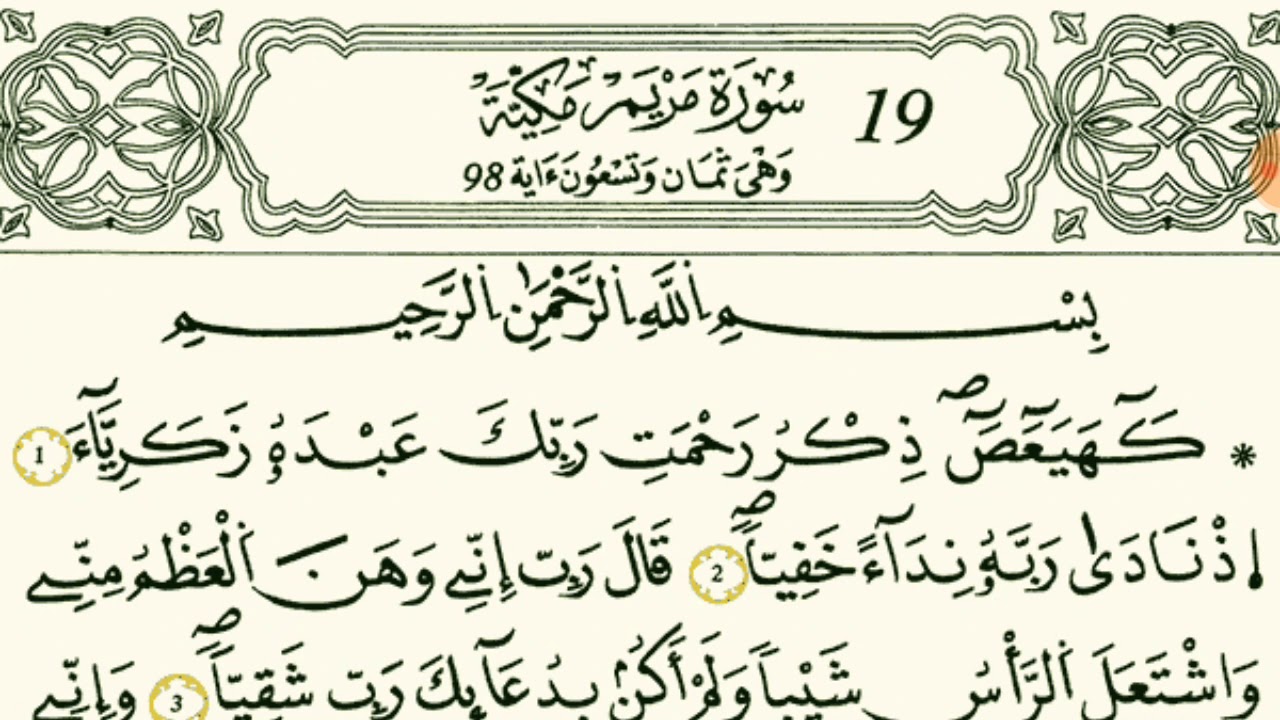 سُورَةُ مَرْيَمَ مَكِّيَّةٌ 19
وَهْىَ ثَمَانٍ وَتَسْعُونَ ءَايَةً 98
بِسْمِ اِ۬للَّهِ اِ۬لرَّحْمَٰنِ اِ۬لرَّحِيمِ
* كَٓهَيَعَٓصَٓ ذِكْرُ رَحْمَتِ رَبِّكَ عَبْدَهُۥ زَكَرِيَّآءَ 1
إِذْ نَادَىٰ رَبَّهُۥ نِدَآءً خَفِيّاٗ 2 قَالَ رَبِّ إِنِّے وَهَنَ اَ۬لْعَظْمُ مِنِّے
وَاشْتَعَلَ اَ۬لرَّأْسُ شَيْباٗ وَلَمْ أَكُنۢ بِدُعَآئِكَ رَبِّ شَقِيّاٗ 3 وَإِنِّے